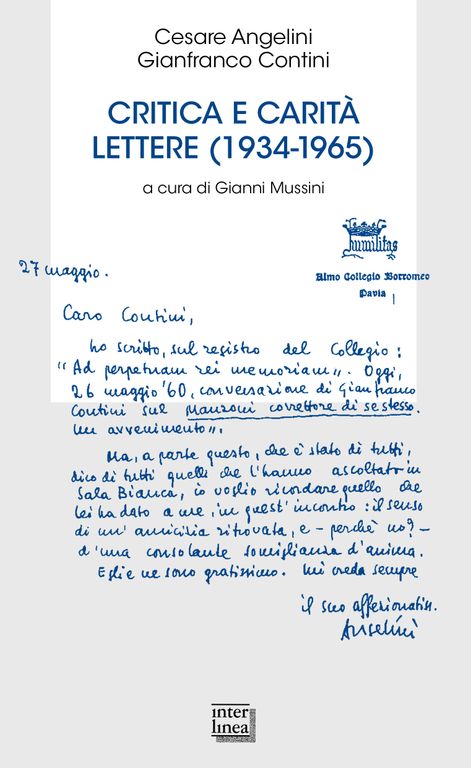 Cesare Angelini
Gianfranco Contini
CRITICA E CARITÀ
LETTERE (1934-1965)
a cura di Gianni Mussini
humilitas
Almo Collegio Borromeo
Pavia
27 maggio.
Caro Contini,
ho scritto, sul registro del Collegio:
"Ad perpetuam rei memoriam". Oggi,
26 maggio '60, conversazione di Gianfranco
Contini sul Manzoni correttore di se stesso.
Un avvenimento".
Ma, a parte questo, che è stato di tutti,
dico di tutti quelli che l'hanno ascoltato in
Sala Bianca, io voglio ricordare quello che
lei ha dato a me, in quest'incontro: il senso
di un'amicizia ritrovata, e – perchè no? –
d'una consolante somiglianza d'anima.
E gliene sono gratissimo. Mi creda sempre
il suo affezionatiss.
Angelini
inter
linea